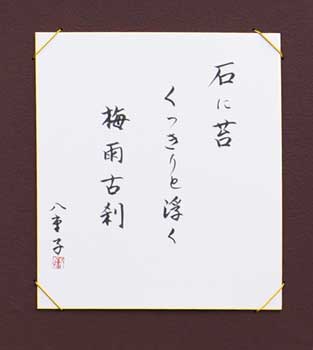 石に苔
くっきりと浮く
梅雨古刹
八重子